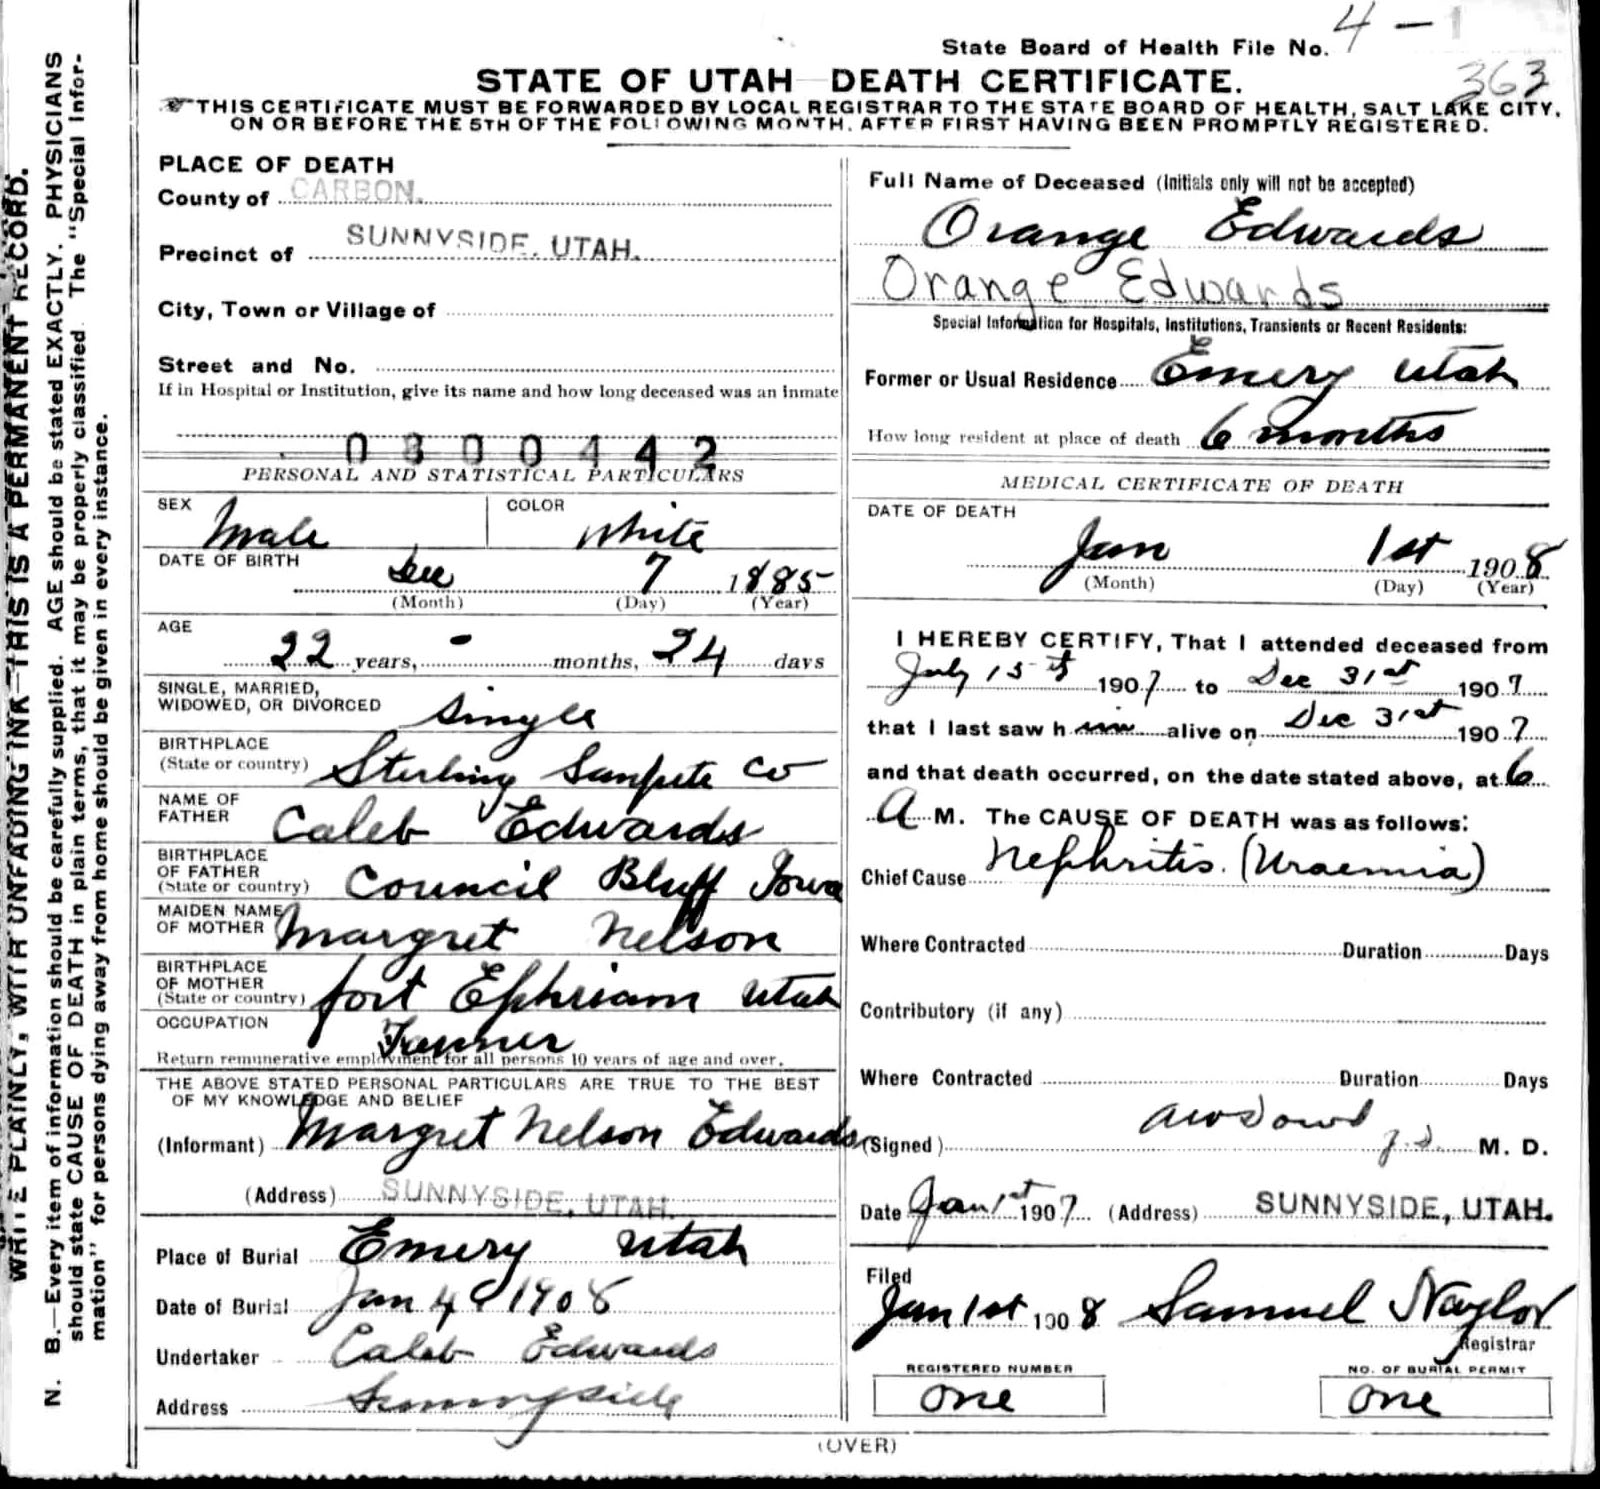 4 - 1
State Board of Health File No.
363
STATE OF UTAH DEATH CERTIFICATE.
THIS CERTIFICATE MUST BE FORWARDED BY LOCAL REGISTRAR TO THE STATE BOARD OF HEALTH, SALT LAKE CITY,
ON OR BEFORE THE 5TH OF THE FOLLOWING MONTH, AFTER FIRST HAVING BEEN PROMPTLY REGISTERED.
WRITE PLAINLY, WITH UNFADING INK—THIS IS A PERMANENT RECORD.
N. B.—Every item of information should be carefully supplied. AGE should be stated EXACTLY. PHYSICIANS
should state CAUSE OF DEATH in plain terms, that it may be properly classified. The "Special Infor-
mation" for persons dying away from home should be given in every instance.
PLACE OF DEATH
County of CARBON.
Precinct of SUNNYSIDE, UTAH.
City, Town or Village of
Street and No.
If in Hospital or Institution, give its name and how long deceased was an inmate
0300442
PERSONAL AND STATISTICAL PARTICULARS
SEX Male COLOR White
DATE OF BIRTH Dec 7 1885
(Month) (Day) (Year)
AGE
22 years, - months, 24 days
SINGLE, MARRIED,
WIDOWED, OR DIVORCED Single
BIRTHPLACE
(State or country) Sterling Sanpete Co
NAME OF
FATHER Caleb Edwards
BIRTHPLACE
OF FATHER
(State or country) Council Bluff Iowa
MAIDEN NAME
OF MOTHER Margret Nelson
BIRTHPLACE
OF MOTHER
(State or country) fort Ephriam Utah
OCCUPATION Farmer
Return remunerative employment for all persons 10 years of age and over.
THE ABOVE STATED PERSONAL PARTICULARS ARE TRUE TO THE BEST
OF MY KNOWLEDGE AND BELIEF
(Informant) Margret Nelson Edwards
(Address) SUNNYSIDE, UTAH.
Place of Burial Emery Utah
Date of Burial Jan 4 1908
Undertaker Caleb Edwards
Address Sunnyside
Full Name of Deceased (Initials only will not be accepted)
Orange Edwards
Orange Edwards
Special Information for Hospitals, Institutions, Transients or Recent Residents:
Former or Usual Residence Emery Utah
How long resident at place of death 6 months
MEDICAL CERTIFICATE OF DEATH
DATE OF DEATH
Jan 1st 1908
(Month) (Day) (Year)
I HEREBY CERTIFY, That I attended deceased from
July 15th 1907 to Dec 31st 1907
that I last saw h im alive on Dec 31st 1907
and that death occurred, on the date stated above, at 6
A M. The CAUSE OF DEATH was as follows:
Chief Cause Nephritis. (Uraemia)
Where Contracted Duration Days
Contributory (if any)
Where Contracted Duration Days
(Signed) M. D.
Date Jan 1st 1907 (Address) SUNNYSIDE, UTAH.
Filed
Jan 1st 1908 Samuel Naylor
Registrar
REGISTERED NUMBER NO. OF BURIAL PERMIT
One One
(OVER)